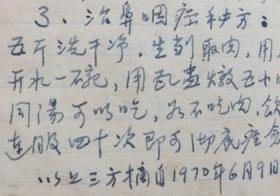 3、治鼻咽癌秘方：
五斤洗干净，生剖取肉，用
开水一碗，用瓦盅燉五小
同湯可以吃，亦不吃肉，
连服四十次即可彻底痊愈
以上三方摘自1970年6月9日